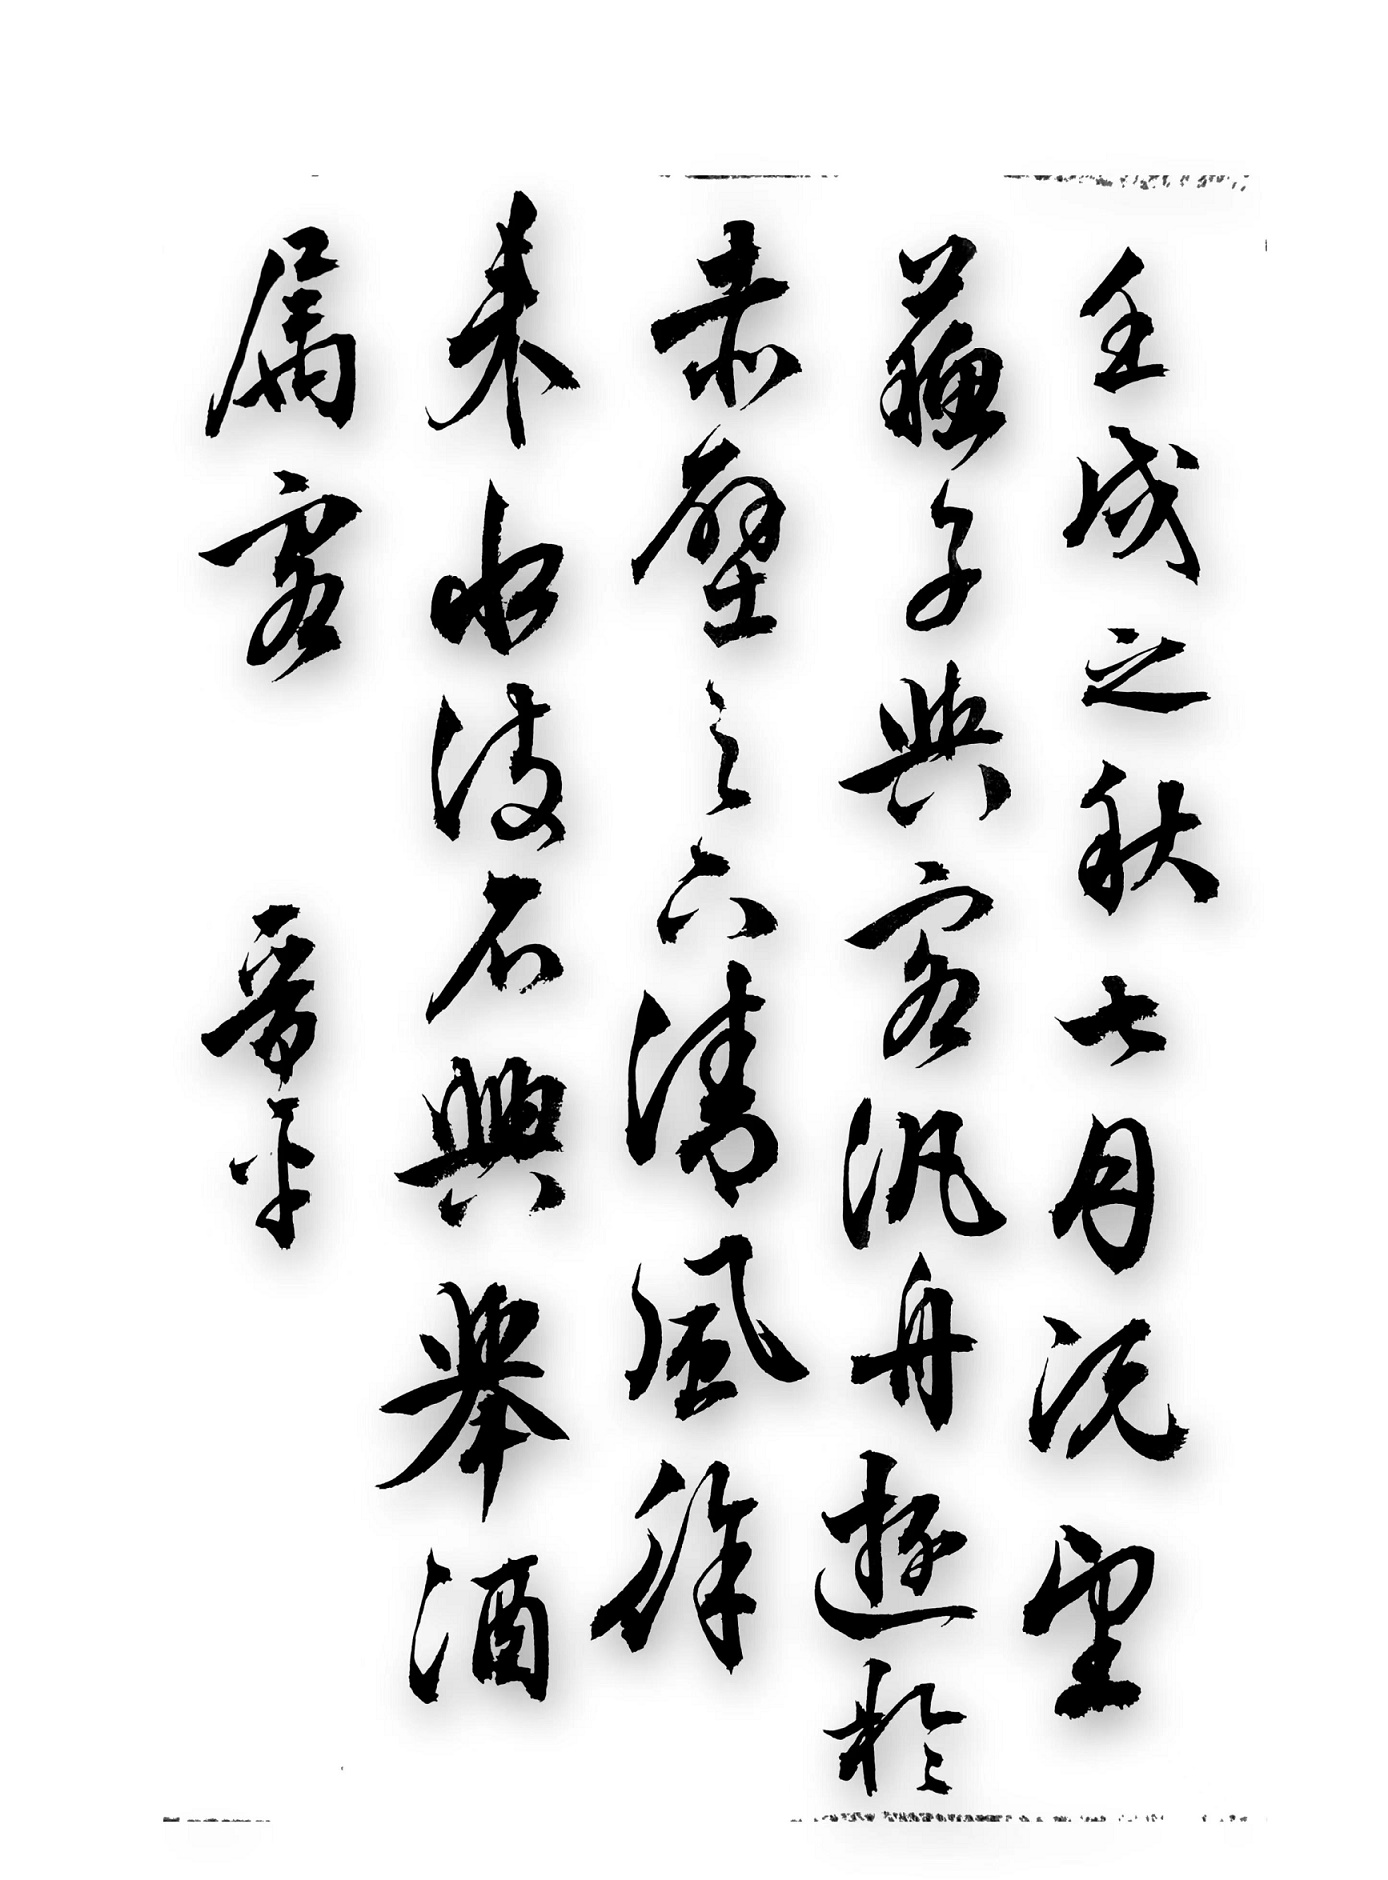 壬戌之秋七月既望
蘇子與客汎舟遊於
赤壁之下清風徐
来水波不興舉酒
属客
晋平